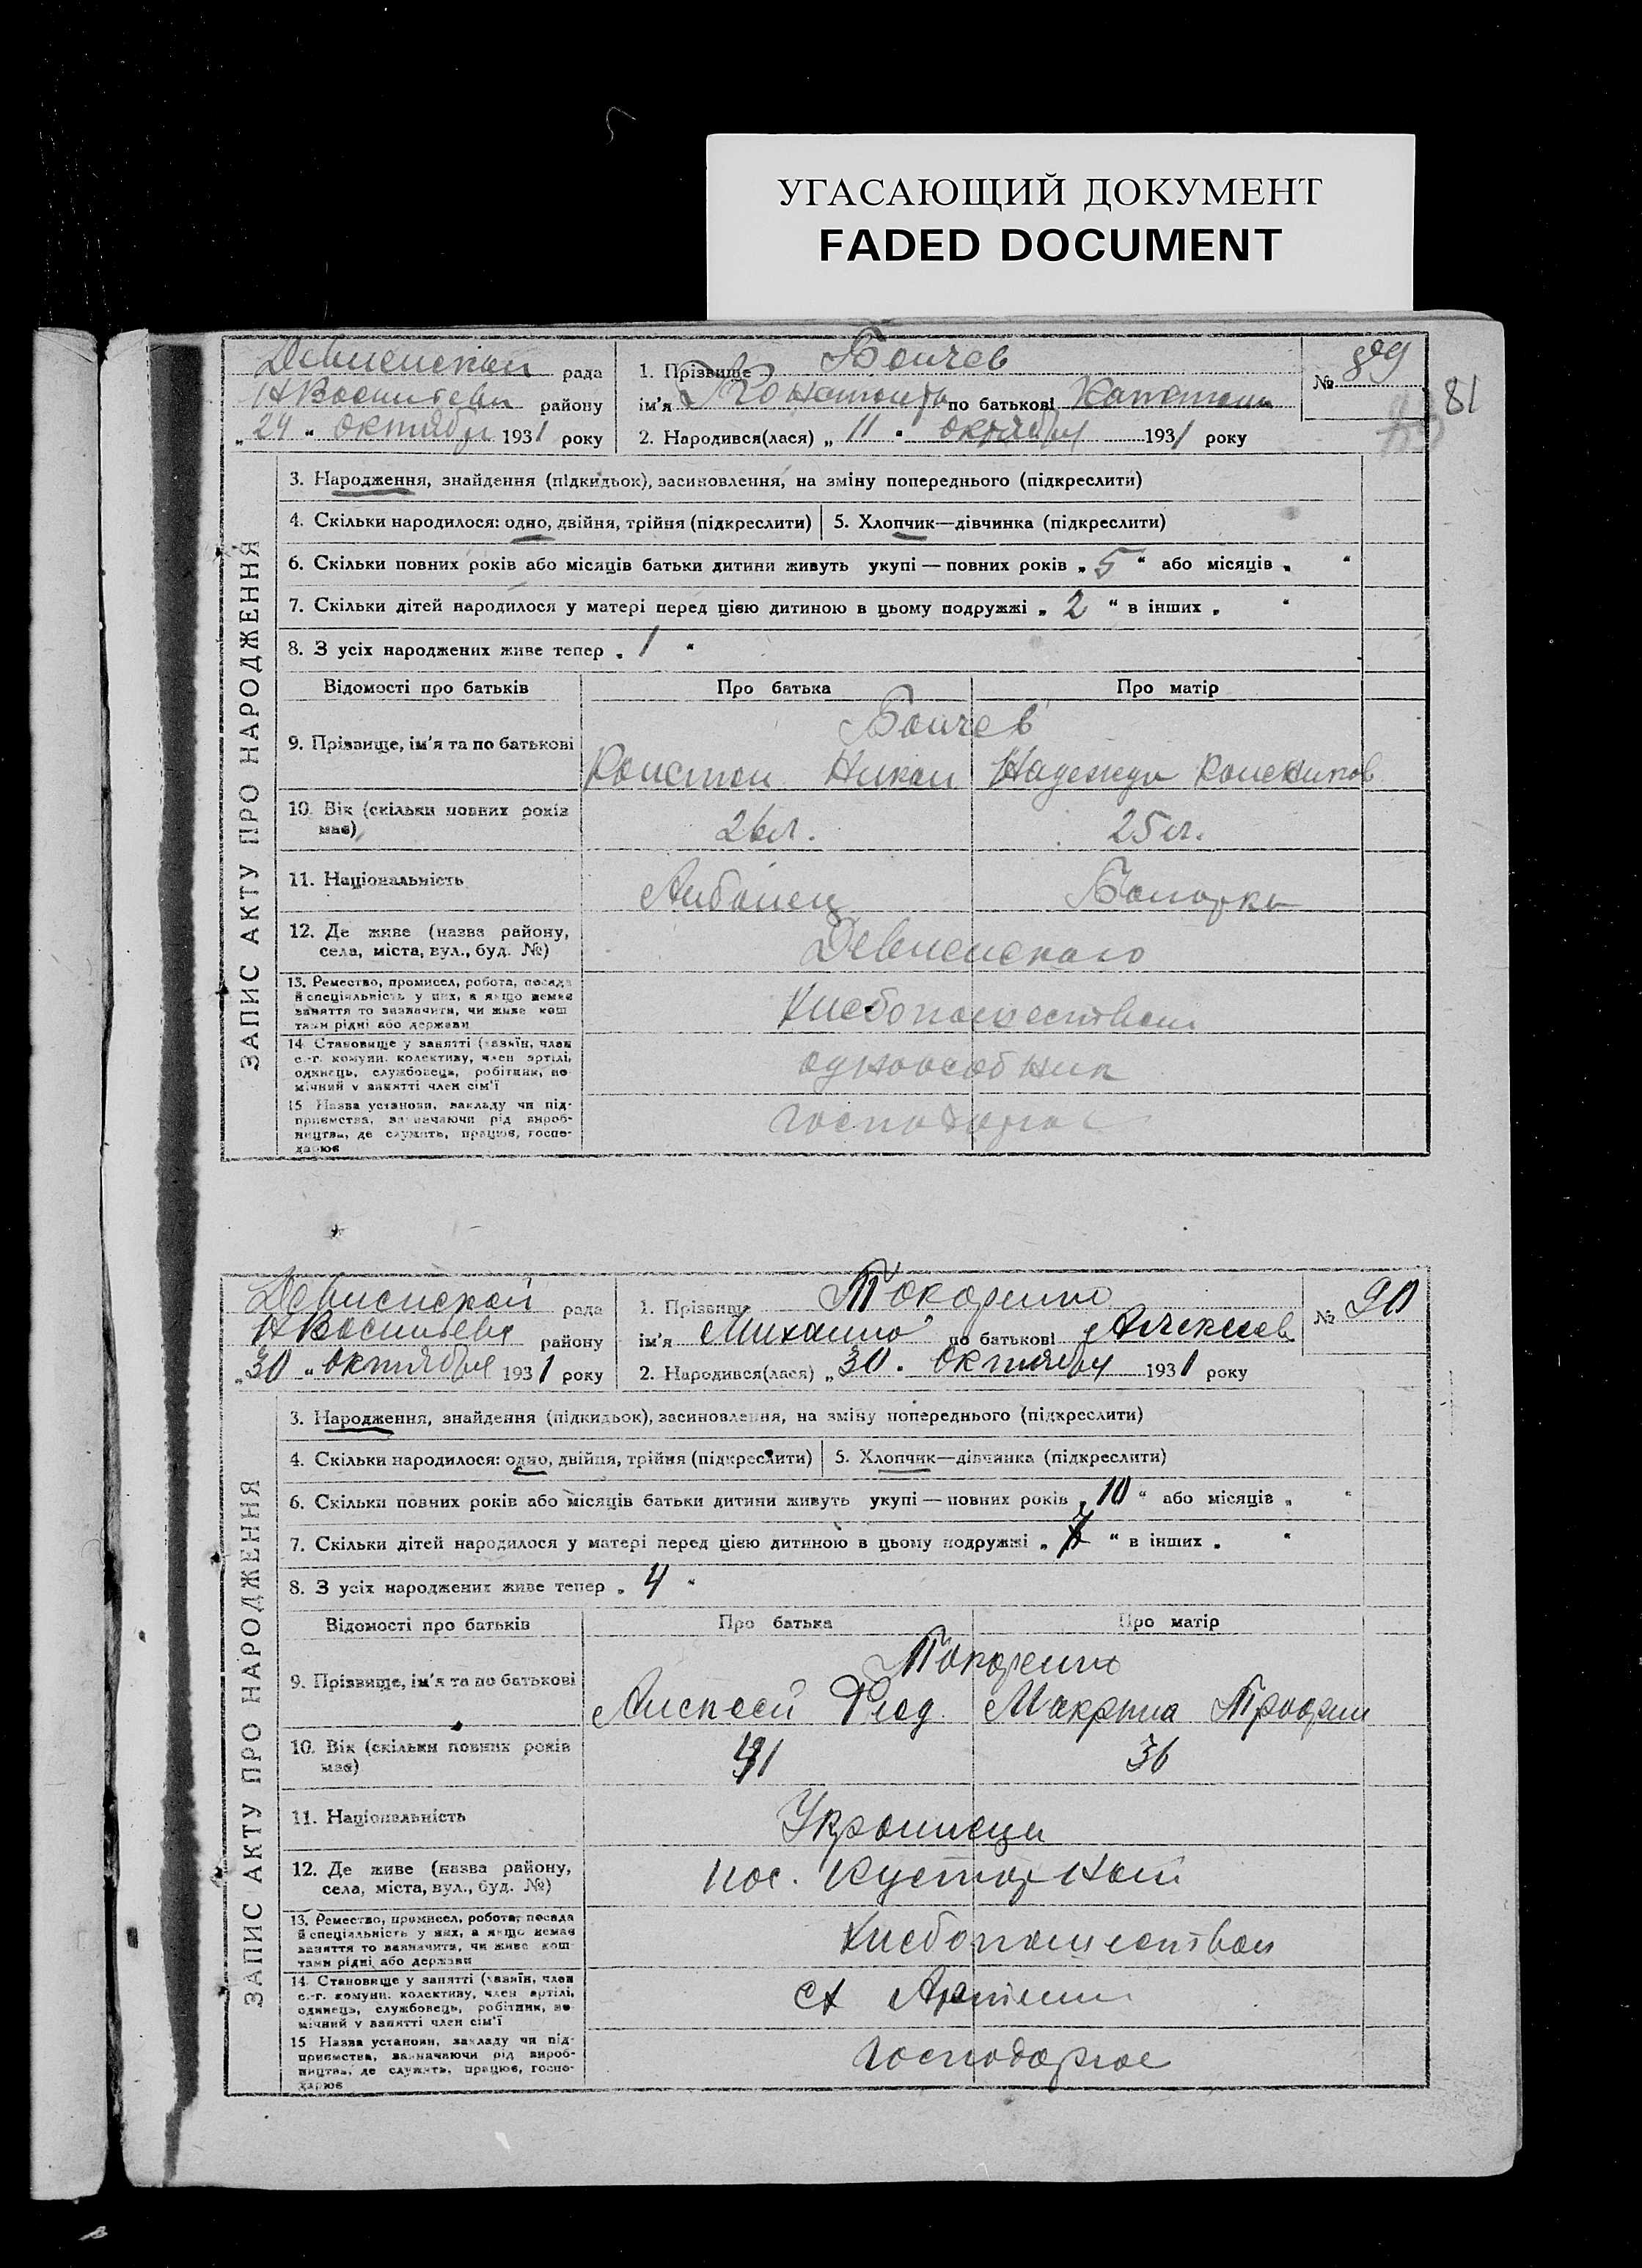 УГАСАЮЩИЙ ДОКУМЕНТ
FADED DOCUMENT
81
ЗАПИС АКТУ ПРО НАРОДЖЕННЯ
рада
району
„24“ октября 1931 року
1. Прізвище Бойчев
ім'я по батькові
№ 89
2. Народився(лася) „11“ октября 1931 року
3. Народження, знайдення (підкидьок), засиновлення, на зміну попереднього (підкреслити)
4. Скільки народилося: одно, двійня, трійня (підкреслити)
5. Хлопчик—дівчинка (підкреслити)
6. Скільки повних років або місяців батьки дитини живуть укупі — повних років „5“ або місяців „ “
7. Скільки дітей народилося у матері перед цією дитиною в цьому подружжі „2“ в інших „ “
8. З усіх народжених живе тепер „1“
Відомості про батьків Про батька Про матір
9. Прізвище, ім'я та по батькові
Бойчев
Надежда
10. Вік (скільки повних років
має)
26 л. 25 л.
11. Національність
Албанец Болгарка
12. Де живе (назва району,
села, міста, вул., буд. №)
13. Ремество, промисел, робота, посада
й спеціяльність у них, а якщо немає
заняття то зазначити, чи живе кош
тами рідні або держави
Хлебопашеством
14. Становище у занятті (хазяїн, член
с.-г. комуни, колективу, член артілі,
одинець, службовець, робітник, по
мічний у занятті член сім'ї
одноособник
15 Назва установи, закладу чи під-
приємства, зазначаючи рід вироб-
ництва, де служить, працює, госпо-
дарює
ЗАПИС АКТУ ПРО НАРОДЖЕННЯ
рада
району
„30“ октября 1931 року
1. Прізвище
ім'я Михаило по батькові Алексеев
№ 90
2. Народився(лася) „30“ октября 1931 року
3. Народження, знайдення (підкидьок), засиновлення, на зміну попереднього (підкреслити)
4. Скільки народилося: одно, двійня, трійня (підкреслити)
5. Хлопчик—дівчинка (підкреслити)
6. Скільки повних років або місяців батьки дитини живуть укупі — повних років „10“ або місяців „ “
7. Скільки дітей народилося у матері перед цією дитиною в цьому подружжі „ “ в інших „ “
8. З усіх народжених живе тепер „4“
Відомості про батьків Про батька Про матір
9. Прізвище, ім'я та по батькові
Алексей Фед.
10. Вік (скільки повних років
має)
41 36
11. Національність
Украинцы
12. Де живе (назва району,
села, міста, вул., буд. №)
пос. Кустарный
13. Ремество, промисел, робота, посада
й спеціяльність у них, а якщо немає
заняття то зазначити, чи живе кош
тами рідні або держави
Хлебопашеством
14. Становище у занятті (хазяїн, член
с.-г. комуни, колективу, член артілі,
одинець, службовець, робітник, по
мічний у занятті член сім'ї
15 Назва установи, закладу чи під-
приємства, зазначаючи рід вироб-
ництва, де служить, працює, госпо-
дарює
господарює